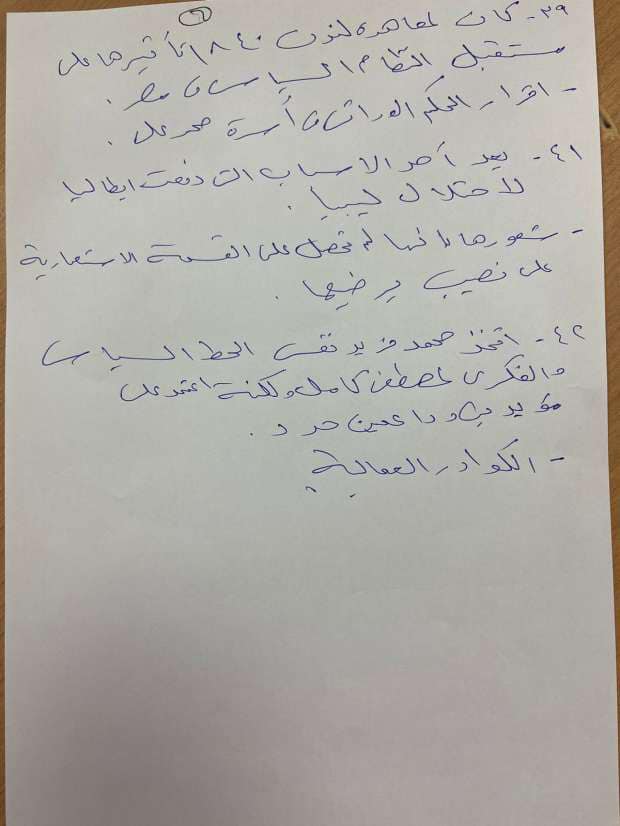 ٣٩- كان لمعاهدة لندن ١٨٤٠ تأثيرها على
مستقبل النظام السياسى فى مصر .
- اقرار الحكم الوراثى فى أسرة محمد على .
٤١- يعد أحد الاسباب التى دفعت ايطاليا
لاحتلال ليبيا .
- شعورها بانها لم تحصل على القسمة الاستعمارية
على نصيب يرضيها .
٤٢- اتخذ محمد فريد نفس الخط السياسى
والفكرى لمصطفى كامل ولكنه اعتمد على
مؤيدين وداعمين جدد .
- الكوادر العمالية